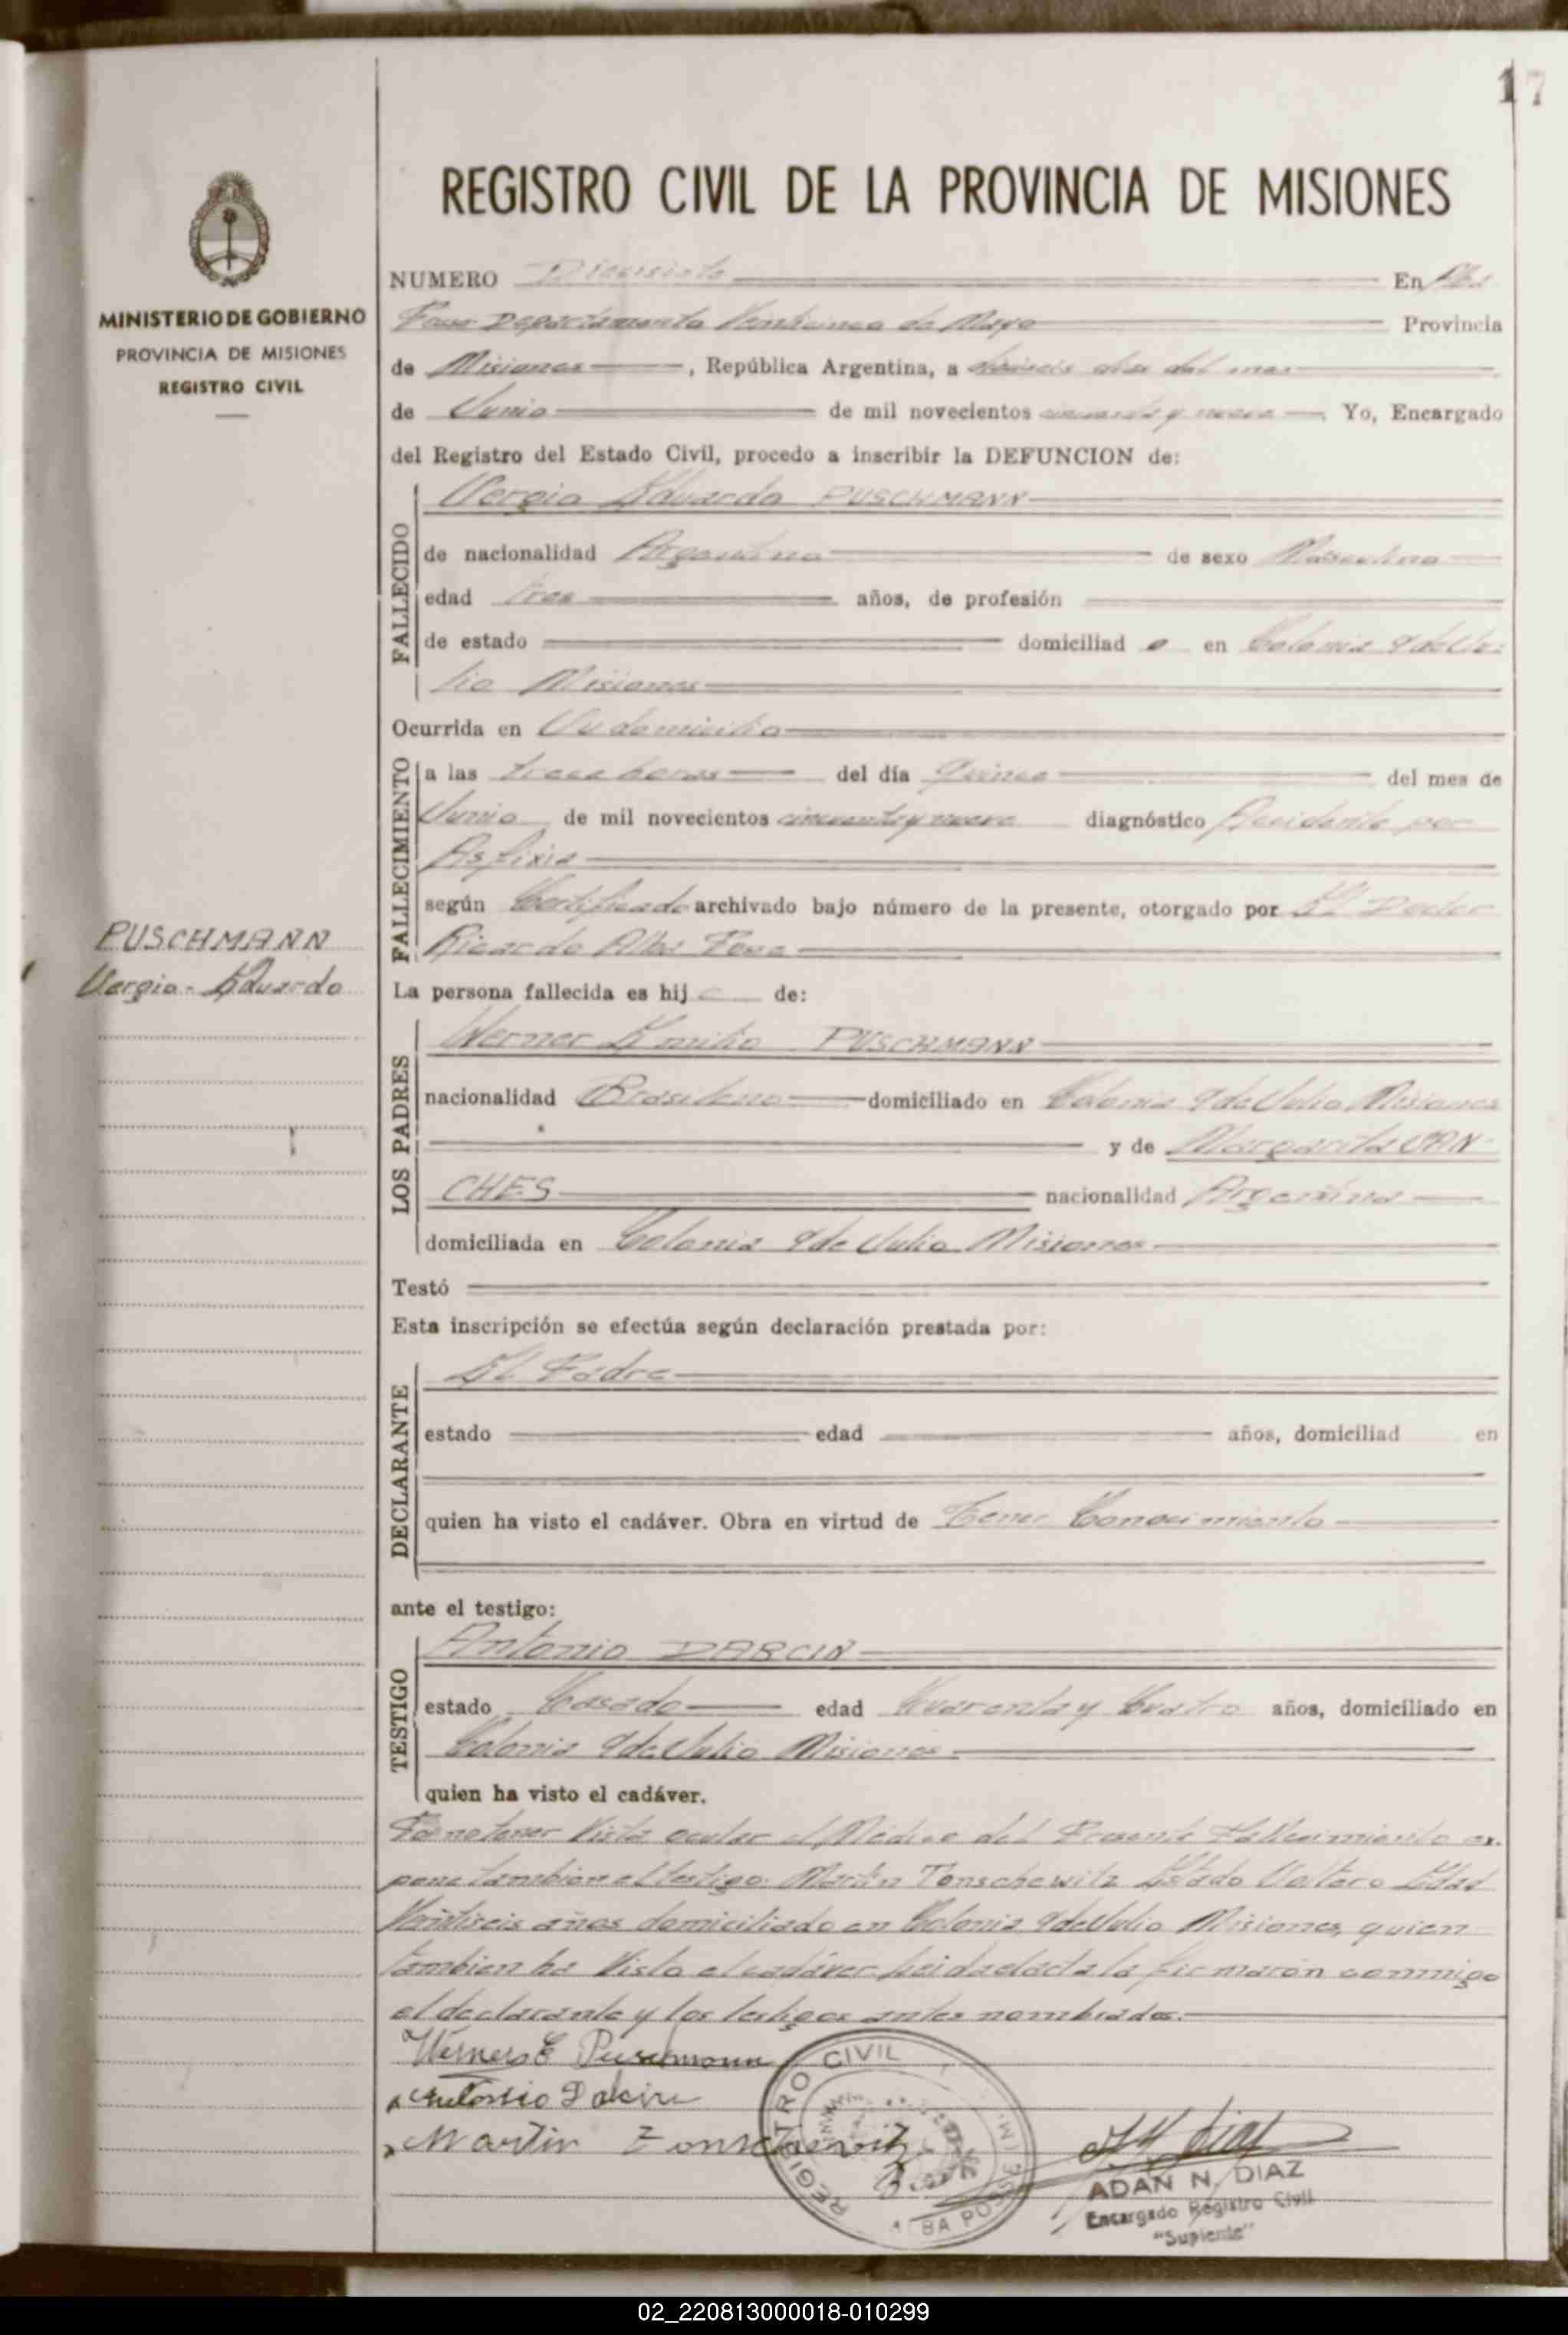 17
REGISTRO CIVIL DE LA PROVINCIA DE MISIONES
MINISTERIO DE GOBIERNO
PROVINCIA DE MISIONES
REGISTRO CIVIL
NUMERO Diecisiete En Alba
Posse Departamento Veinticinco de Mayo Provincia
de Misiones, República Argentina, a dieciseis dias del mes
de Junio de mil novecientos cincuenta y nueve. Yo, Encargado
del Registro del Estado Civil, procedo a inscribir la DEFUNCION de:
FALLECIDO
Sergio Eduardo PUSCHMANN
de nacionalidad Argentina de sexo Masculino
edad tres años, de profesión
de estado domiciliad o en Colonia 9 de Ju-
lio Misiones
Ocurrida en Su domicilio
FALLECIMIENTO
a las trece horas del día Quince del mes de
Junio de mil novecientos cincuenta y nueve diagnóstico Accidente por
Asfixia
según Certificado archivado bajo número de la presente, otorgado por El Doctor
Ricardo Alba Posse
PUSCHMANN
Sergio-Eduardo
La persona fallecida es hij o de:
LOS PADRES
Werner Emilio PUSCHMANN
nacionalidad Brasilero domiciliado en Colonia 9 de Julio Misiones
y de Margarita SAN-
CHES nacionalidad Argentina
domiciliada en Colonia 9 de Julio Misiones
Testó
Esta inscripción se efectúa según declaración prestada por:
DECLARANTE
El Padre
estado edad años, domiciliad en
quien ha visto el cadáver. Obra en virtud de Tener Conocimiento
ante el testigo:
TESTIGO
Antonio DARCIN
estado Casado edad Cuarenta y Cuatro años, domiciliado en
Colonia 9 de Julio Misiones
quien ha visto el cadáver.
Por no tener Vista ocular el Médico del Presente Fallecimiento ex-
pone tambien el testigo Martin Tonschewitz Estado Soltero Edad
Veintiseis años domiciliado en Colonia 9 de Julio Misiones, quien
tambien ha Visto el cadáver leida el acta la firmaron conmigo
el declarante y los testigos antes nombrados.
Werner E Puschmann
Antonio Darcin
Martin Tonschewitz
REGISTRO CIVIL
ALBA POSSE (M.
ADAN N. DIAZ
Encargado Registro Civil
"Suplente"
02_220813000018-010299